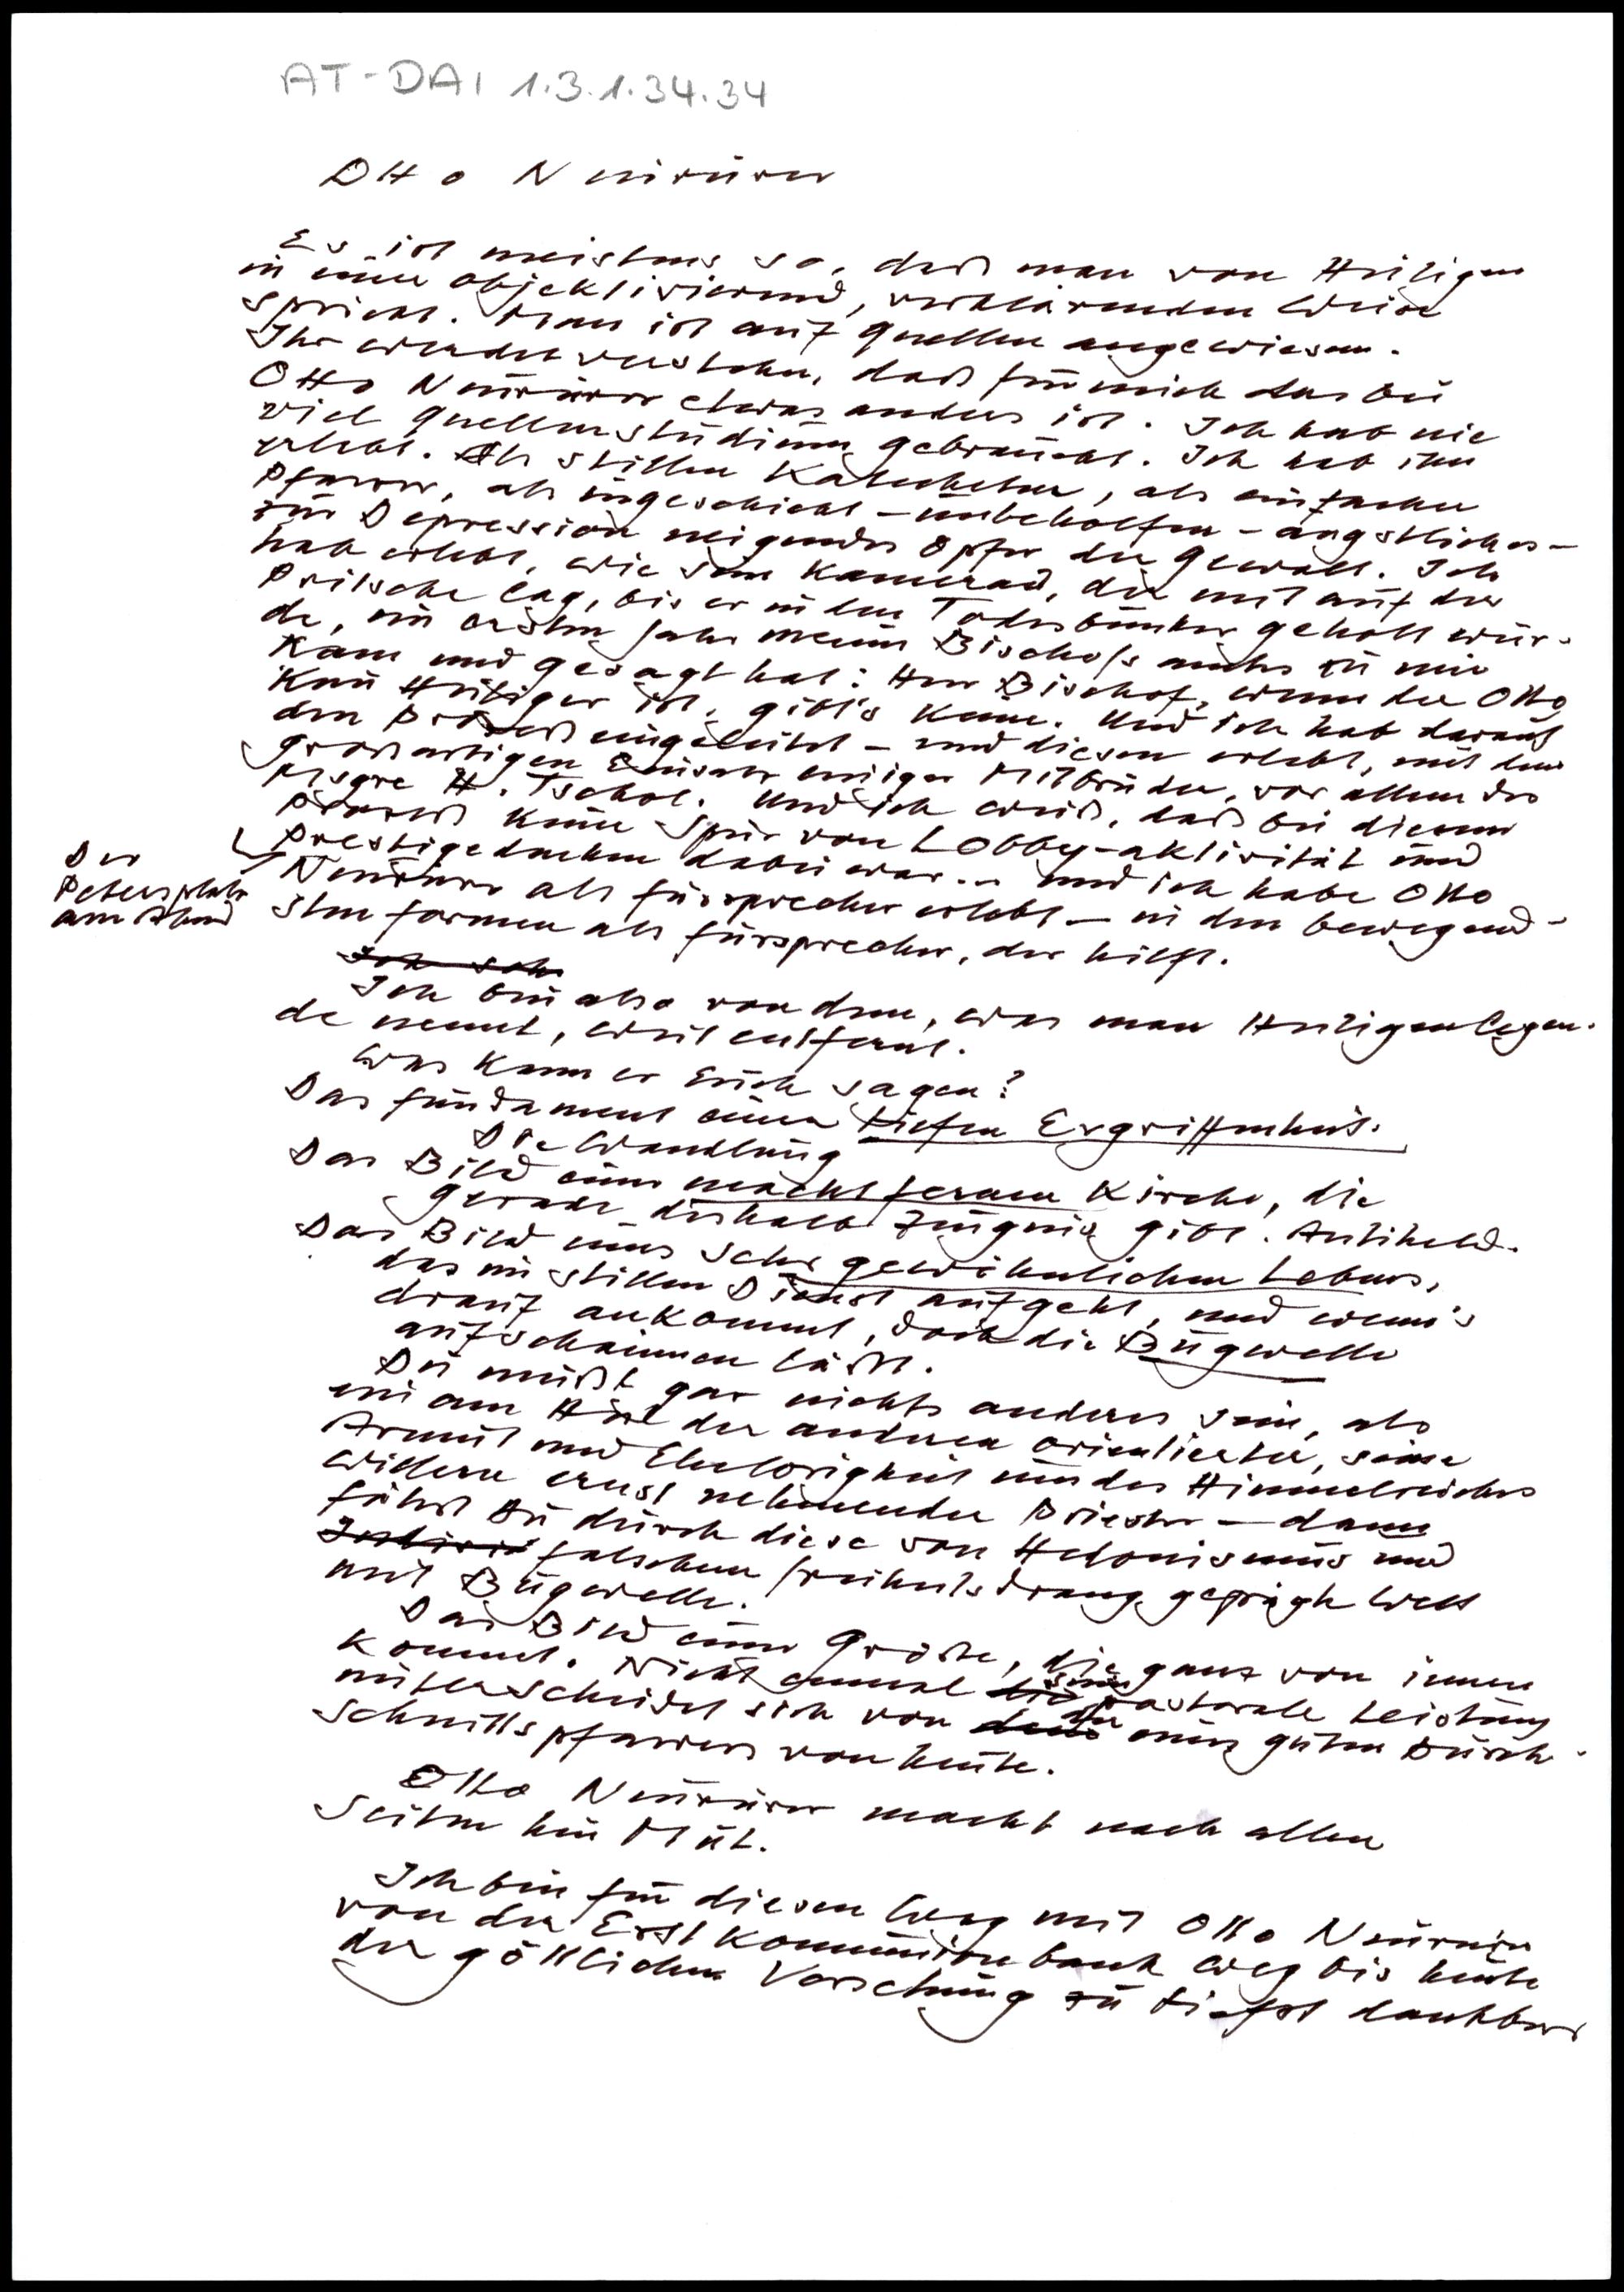 AT-DAI 1.3.1.34.34
Otto Neururer
Es ist meistens so, daß man von Heiligen
in einer objektivierend, verklärenden Weise
spricht. Man ist auf Quellen angewiesen.
Ihr werdet verstehen, daß für mich das bei
Otto Neururer etwas anders ist. Ich hab nie
viel Quellenstudium gebraucht. Ich hab ihn
erlebt. Als stillen Katecheten, als einfachen
Pfarrer, als ungeschickt-unbeholfen-ängstliches-
zur Depression neigendes Opfer der Gewalt. Ich
hab erlebt, wie sein Kamerad, der mit auf der
Pritsche lag, bis er in den Todesbunker geholt wur-
de, im ersten Jahr meines Bischofsamtes zu mir
kam und gesagt hat: Herr Bischof, wenn der Otto
kein Heiliger ist, gibt's keine. Und ich hab darauf
den Prozeß eingeleitet - und diesen erlebt, mit dem
großartigen Einsatz einiger Mitbrüder, vor allem des
Msgre H. Tschol. Und ich weiß, daß bei diesem
Prozeß keine Spur von Lobby-aktivität und
Prestigedenken dabei war.. und ich habe Otto
Der
Petersplatz
am Abend
Neururer als Fürsprecher erlebt - in den bewegend-
sten Formen als Fürsprecher, der hilft.
Ich bin also von dem, was man Heiligenlegen-
de nennt, weit entfernt.
Was kann er Euch sagen?
Das Fundament einer tiefen Ergriffenheit.
Die Wandlung
Das Bild einer machtfernen Kirche, die
gerade deshalb Zeugnis gibt. Antiheld.
Das Bild eines sehr gewöhnlichen Lebens,
das im stillen Dienst aufgeht, und wenn's
drauf ankommt, doch die Bugwelle
aufschäumen läßt.
Du mußt gar nichts anderes sein, als
ein am Heil der anderen orientierter, seine
Armut und Ehelosigkeit um des Himmelreiches
willen ernst nehmender Priester - dann
fährst Du durch diese von Hedonismus und
falschem Freiheitsdrang geprägte Welt
mit Bugwelle.
Das Bild einer Größe, die ganz von innen
kommt. Nicht einmal seine pastorale Leistung
unterscheidet sich von der eines guten Durch-
schnittspfarrers von heute.
Otto Neururer macht nach allen
Seiten hin Mut.
Ich bin für diesen Weg mit Otto Neururer
von der Erstkommunionbank weg bis heute
der göttlichen Vorsehung zu tiefst dankbar